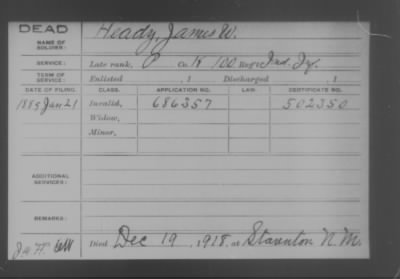 DEAD
NAME OF SOLDIER: Heady, James W.
SERVICE: Late rank, P Co. K 100 Reg't Ind. Inf.
TERM OF SERVICE: Enlisted , 1 Discharged , 1
DATE OF FILING. CLASS. APPLICATION NO. LAW. CERTIFICATE NO.
1889 Jan 21 Invalid, 686357 502350
Widow,
Minor,
ADDITIONAL SERVICES:
REMARKS:
Died Dec 19, 1918, at N. M.